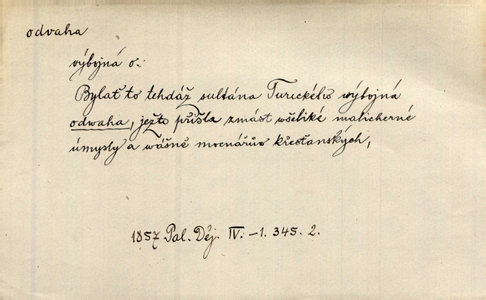 odvaha
výbojná o.:
Bylať to tehdáž sultána Tureckého výbojná
odwaha, ježto přišla zmást wšeliké malicherné
úmysly a wášně mocnářůw křesťanských,
1857 Pal. Děj. IV. –1. 345. 2.